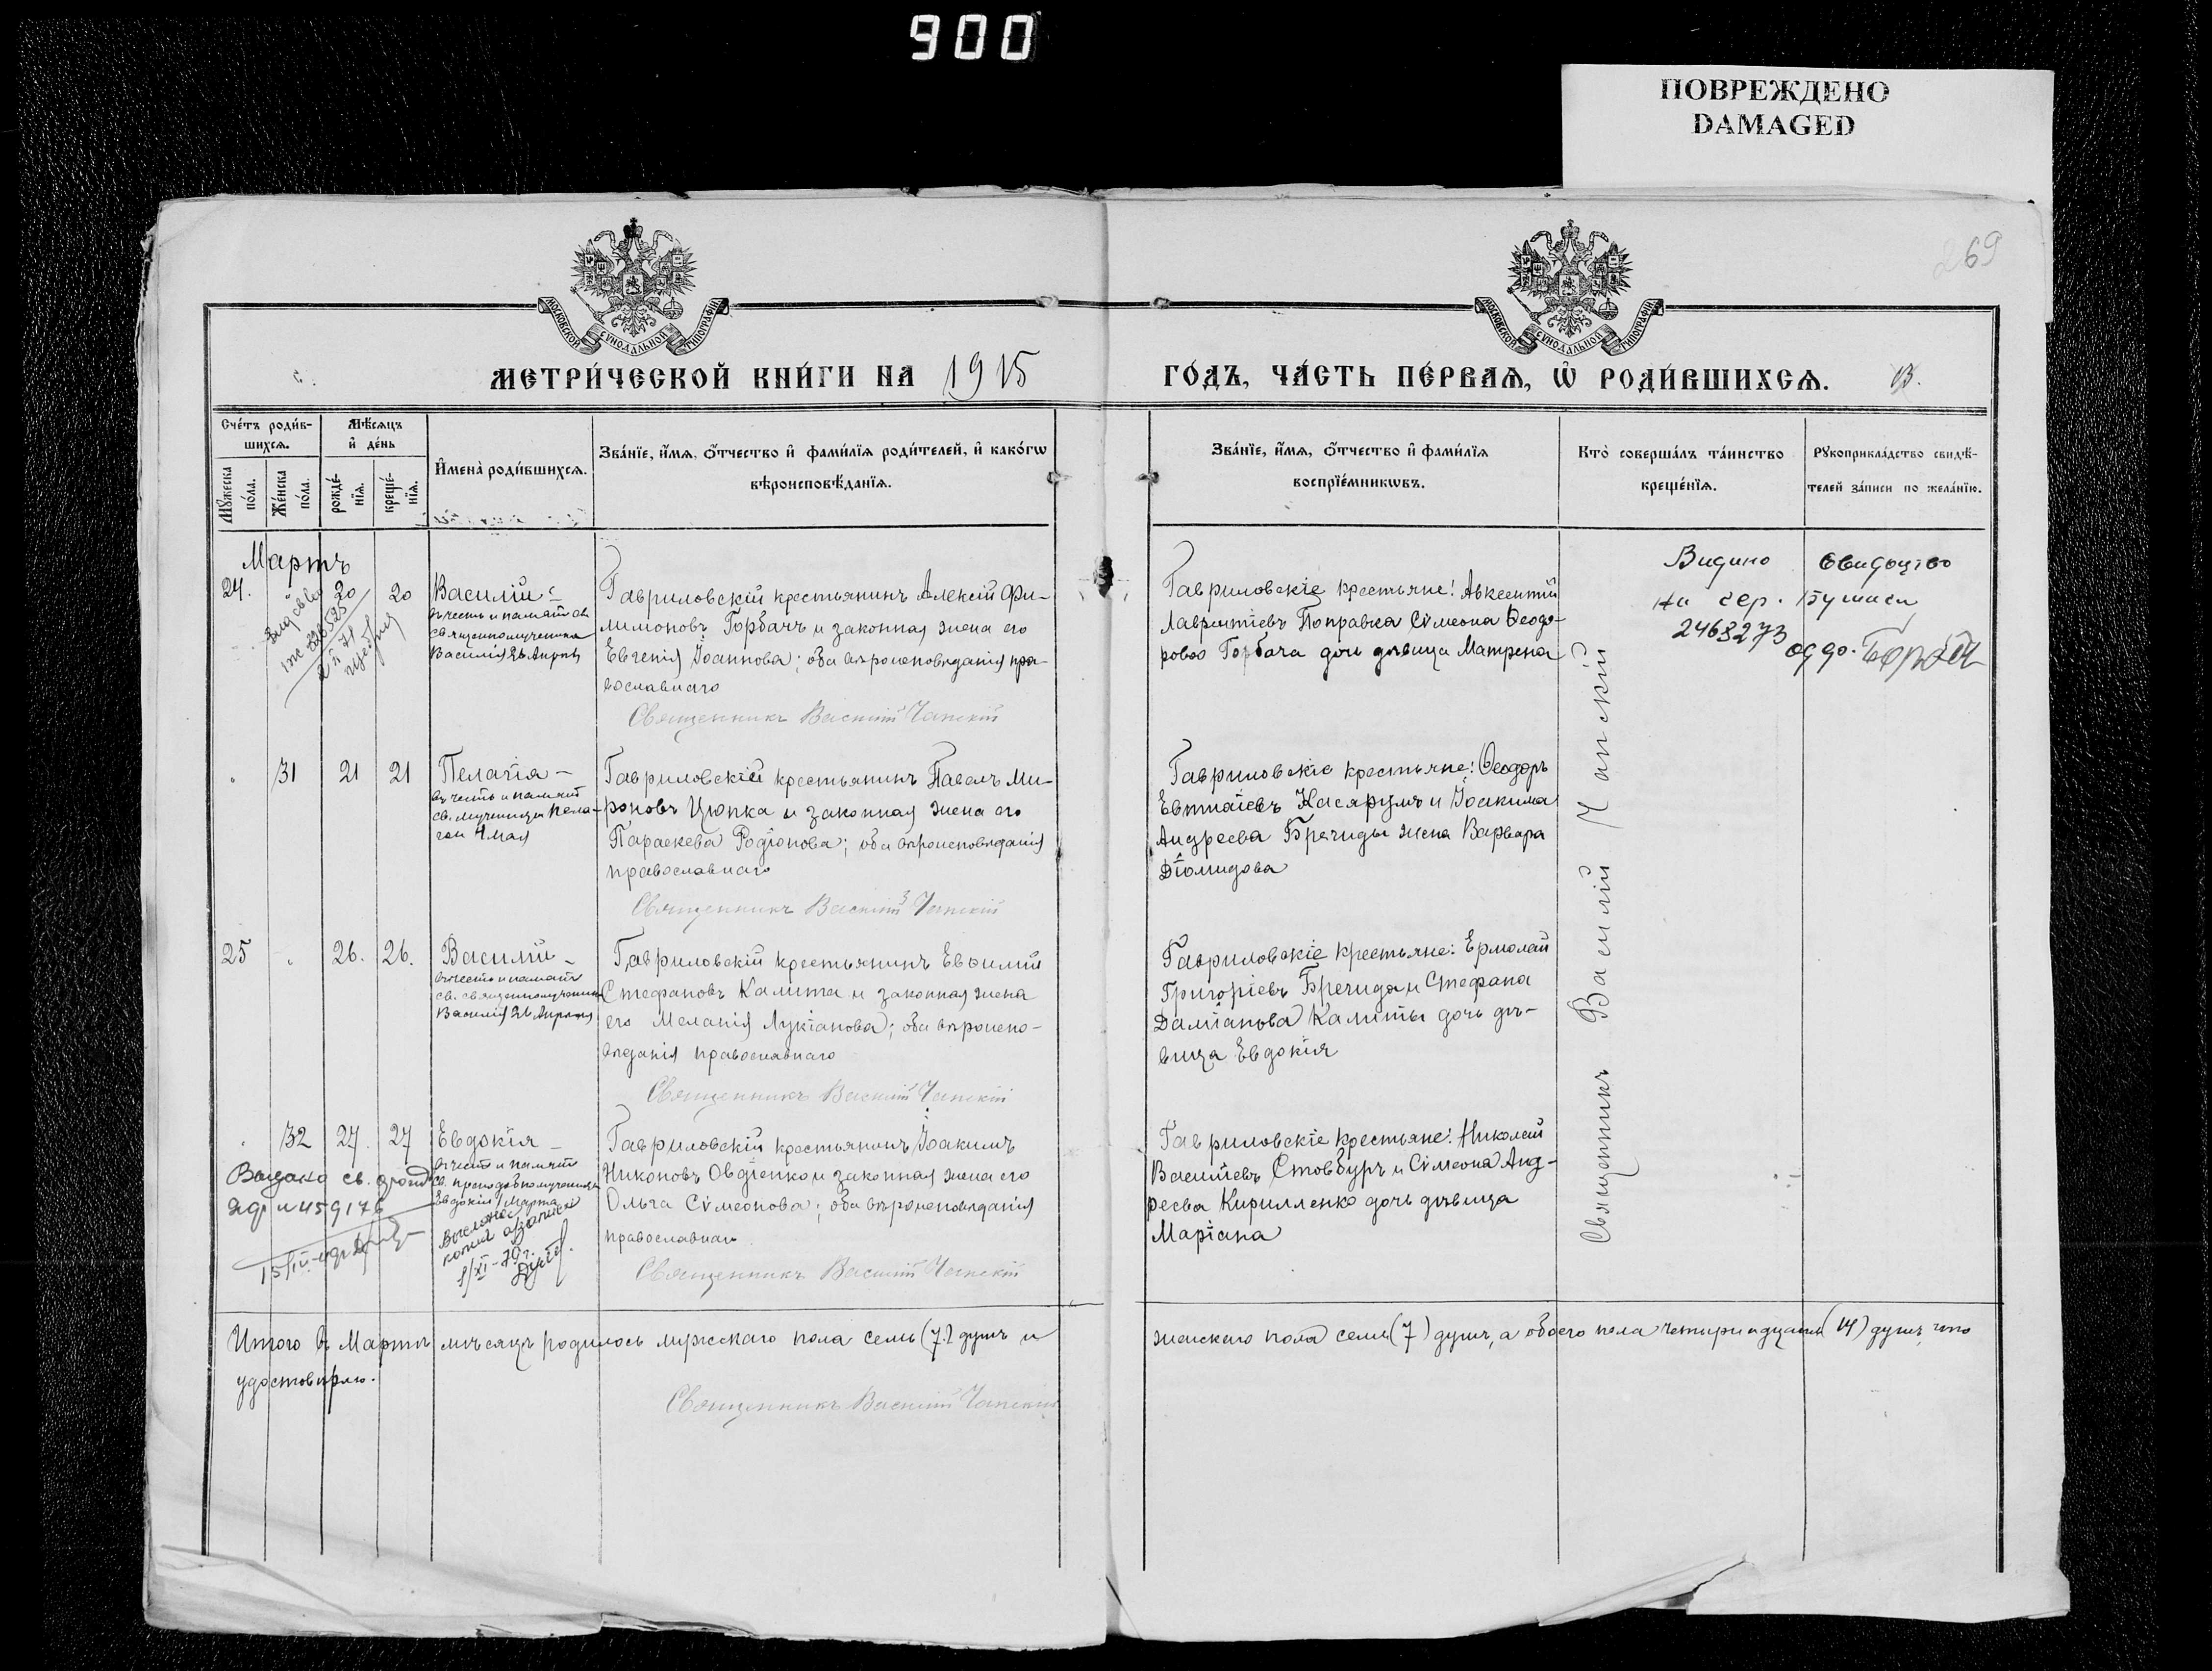 900
ПОВРЕЖДЕНО
DAMAGED
269
МОСКОВСКОЙ СУНОДАЛЬНОЙ ТИПОГРАФІИ
МОСКОВСКОЙ СУНОДАЛЬНОЙ ТИПОГРАФІИ
МЕТРИ́ЧЕСКОЙ КНИ́ГИ НА 1915
ГО́ДЪ, ЧА́СТЬ ПЕ́РВАЯ, Ѡ҆ РОДИ́ВШИХСЯ.
Сче́тъ роди́в-
шихся.
Мѣ́сяцъ
и҆ де́нь
Мꙋ́жеска
по́ла.
Же́нска
по́ла.
рожде́-
нїя.
креще́-
нїя.
И҆мена̀ роди́вшихся.
Зва́нїе, и҆́мя, ѻ҆́тчество и҆ фами́лїя роди́телей, и҆ како́гѡ
вѣроисповѣ́данїя.
Зва́нїе, и҆́мя, ѻ҆́тчество и҆ фами́лїя
воспрїе́мникѡвъ.
Кто̀ соверша́лъ та́инство
креще́нїя.
Рꙋкоприкла́дство свидѣ́-
телей за́писи по жела́нїю.
Мартъ
24. 20 20 Василій
въ честь и память
священномученика
Василія 26 Апрѣля
Гавриловскій крестьянинъ Алексій Фи-
лимоновъ Горбачъ и законная жена его
Евгенія Іоаннова; оба вѣроисповѣданія пра-
вославнаго
Священникъ Василій Чапскій
Гавриловскіе крестьяне: Авксентій
Лаврентіевъ Поправка Сѵмеона Ѳеодо-
рова Горбача дочь дѣвица Матрена
Видано свидоцтво
на сер.
2463273
31 21 21 Пелагія –
въ честь и память
св. мученицы Пела-
гіи 4 мая
Гавриловскій крестьянинъ Павелъ Ми-
роновъ Цюпка и законная жена его
Параскева Родіонова; оба вѣроисповѣданія
православнаго
Священникъ Василій Чапскій
Гавриловскіе крестьяне: Ѳеодоръ
Касярумъ и Іоакима
Андреева Бречиды жена Варвара
Діомидова
25 26. 26. Василій –
въ честь и память
св. священномученика
Василія 26 Апрѣля
Гавриловскій крестьянинъ Евѳимій
Стефановъ Калита и законная жена
его Меланія Лукіанова; оба вѣроиспо-
вѣданія православнаго
Священникъ Василій Чапскій
Гавриловскіе крестьяне: Ермолай
Григоріевъ Бречида и Стефана
Даміанова Калиты дочь дѣ-
вица Евдокія
32 27. 27 Евдокія –
въ честь и память
св. преподобномученицы
Евдокіи 1 Марта
Гавриловскій крестьянинъ Іоакимъ
Никоновъ Овдіенко и законная жена его
Ольга Сѵмеонова; оба вѣроисповѣданія
православнаго
Священникъ Василій Чапскій
Гавриловскіе крестьяне: Николай
Василіевъ Стовбуръ и Сѵмеона Анд-
реева Кирилленко дочь дѣвица
Маріана
Священникъ Василій Чапскій
Итого въ Мартѣ мѣсяцѣ родилось мужскаго пола семь (7) душъ и
женскаго пола семь (7) душъ, а обоего пола четырнадцать (14) душъ, что
удостовѣряю.
Священникъ Василій Чапскій